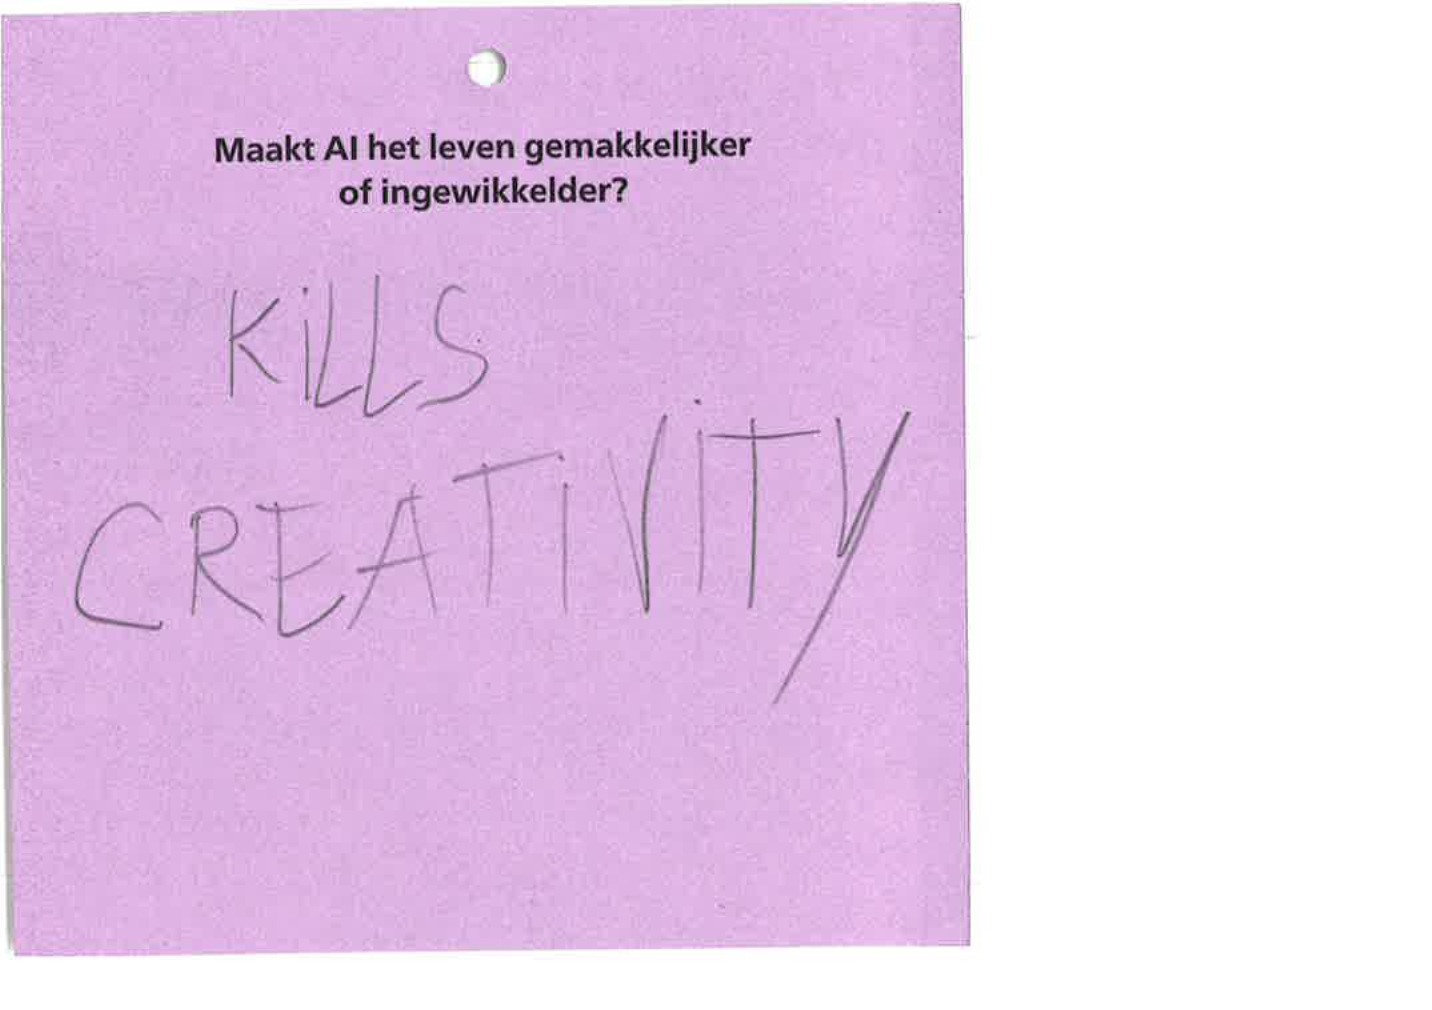 Maakt AI het leven gemakkelijker
of ingewikkelder?
KiLLS
CREATiViTY